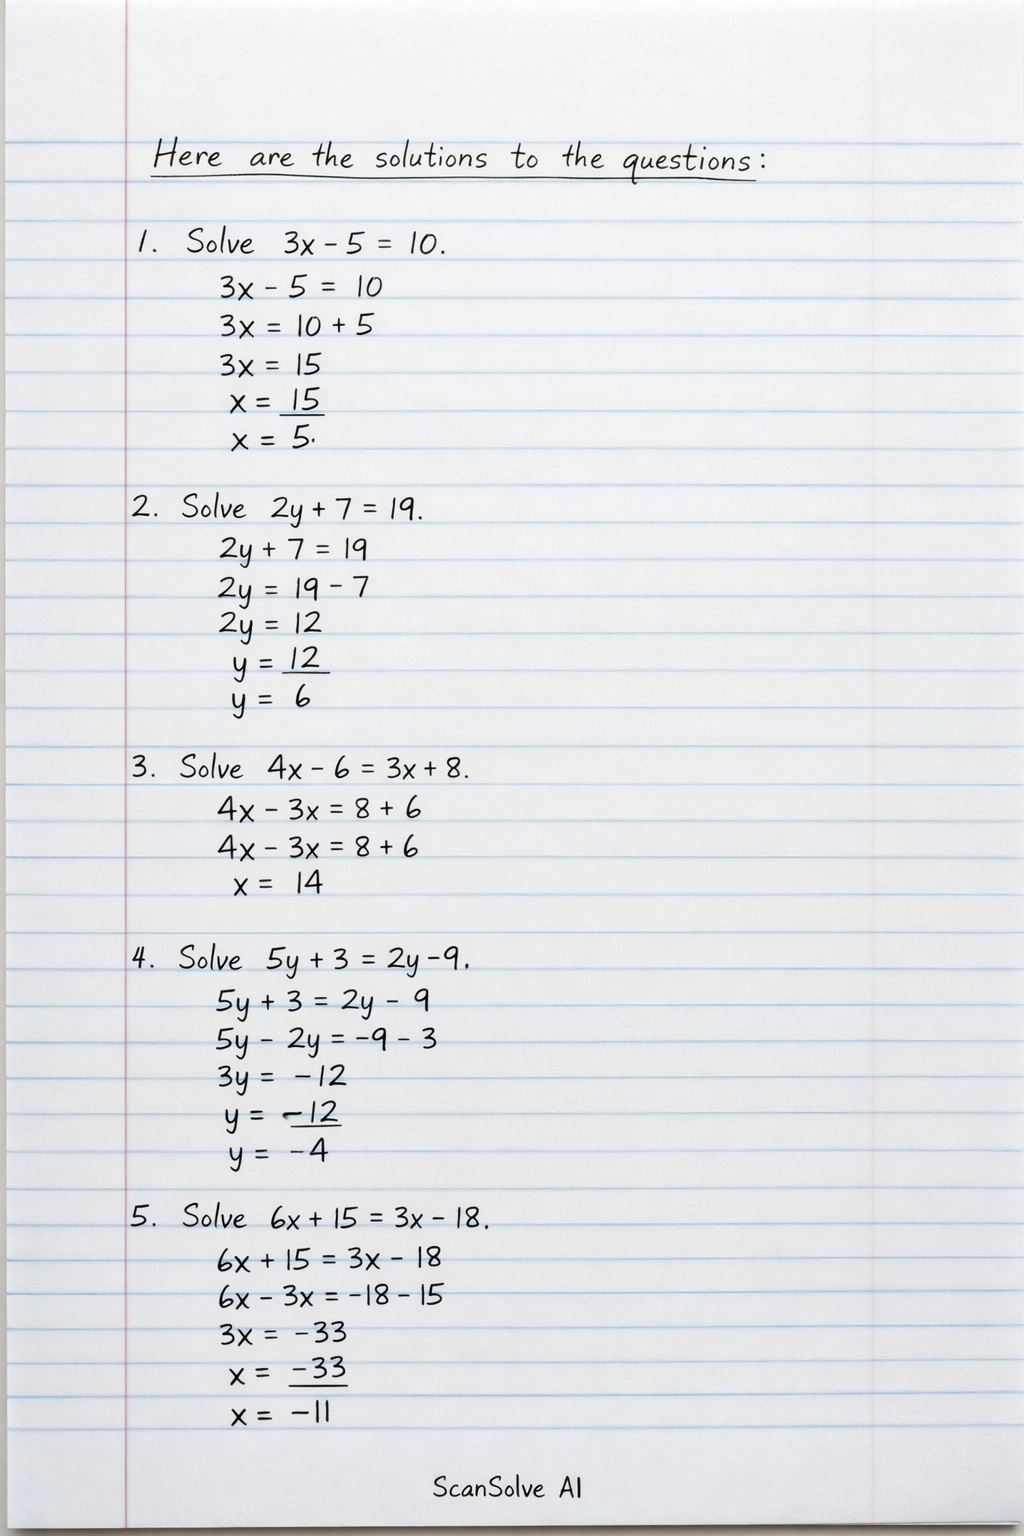 Here are the solutions to the questions:
1. Solve 3x - 5 = 10.
3x - 5 = 10
3x = 10 + 5
3x = 15
x = 15
x = 5.
2. Solve 2y + 7 = 19.
2y + 7 = 19
2y = 19 - 7
2y = 12
y = 12
y = 6
3. Solve 4x - 6 = 3x + 8.
4x - 3x = 8 + 6
4x - 3x = 8 + 6
x = 14
4. Solve 5y + 3 = 2y - 9.
5y + 3 = 2y - 9
5y - 2y = -9 - 3
3y = -12
y = -12
y = -4
5. Solve 6x + 15 = 3x - 18.
6x + 15 = 3x - 18
6x - 3x = -18 - 15
3x = -33
x = -33
x = -11
ScanSolve AI